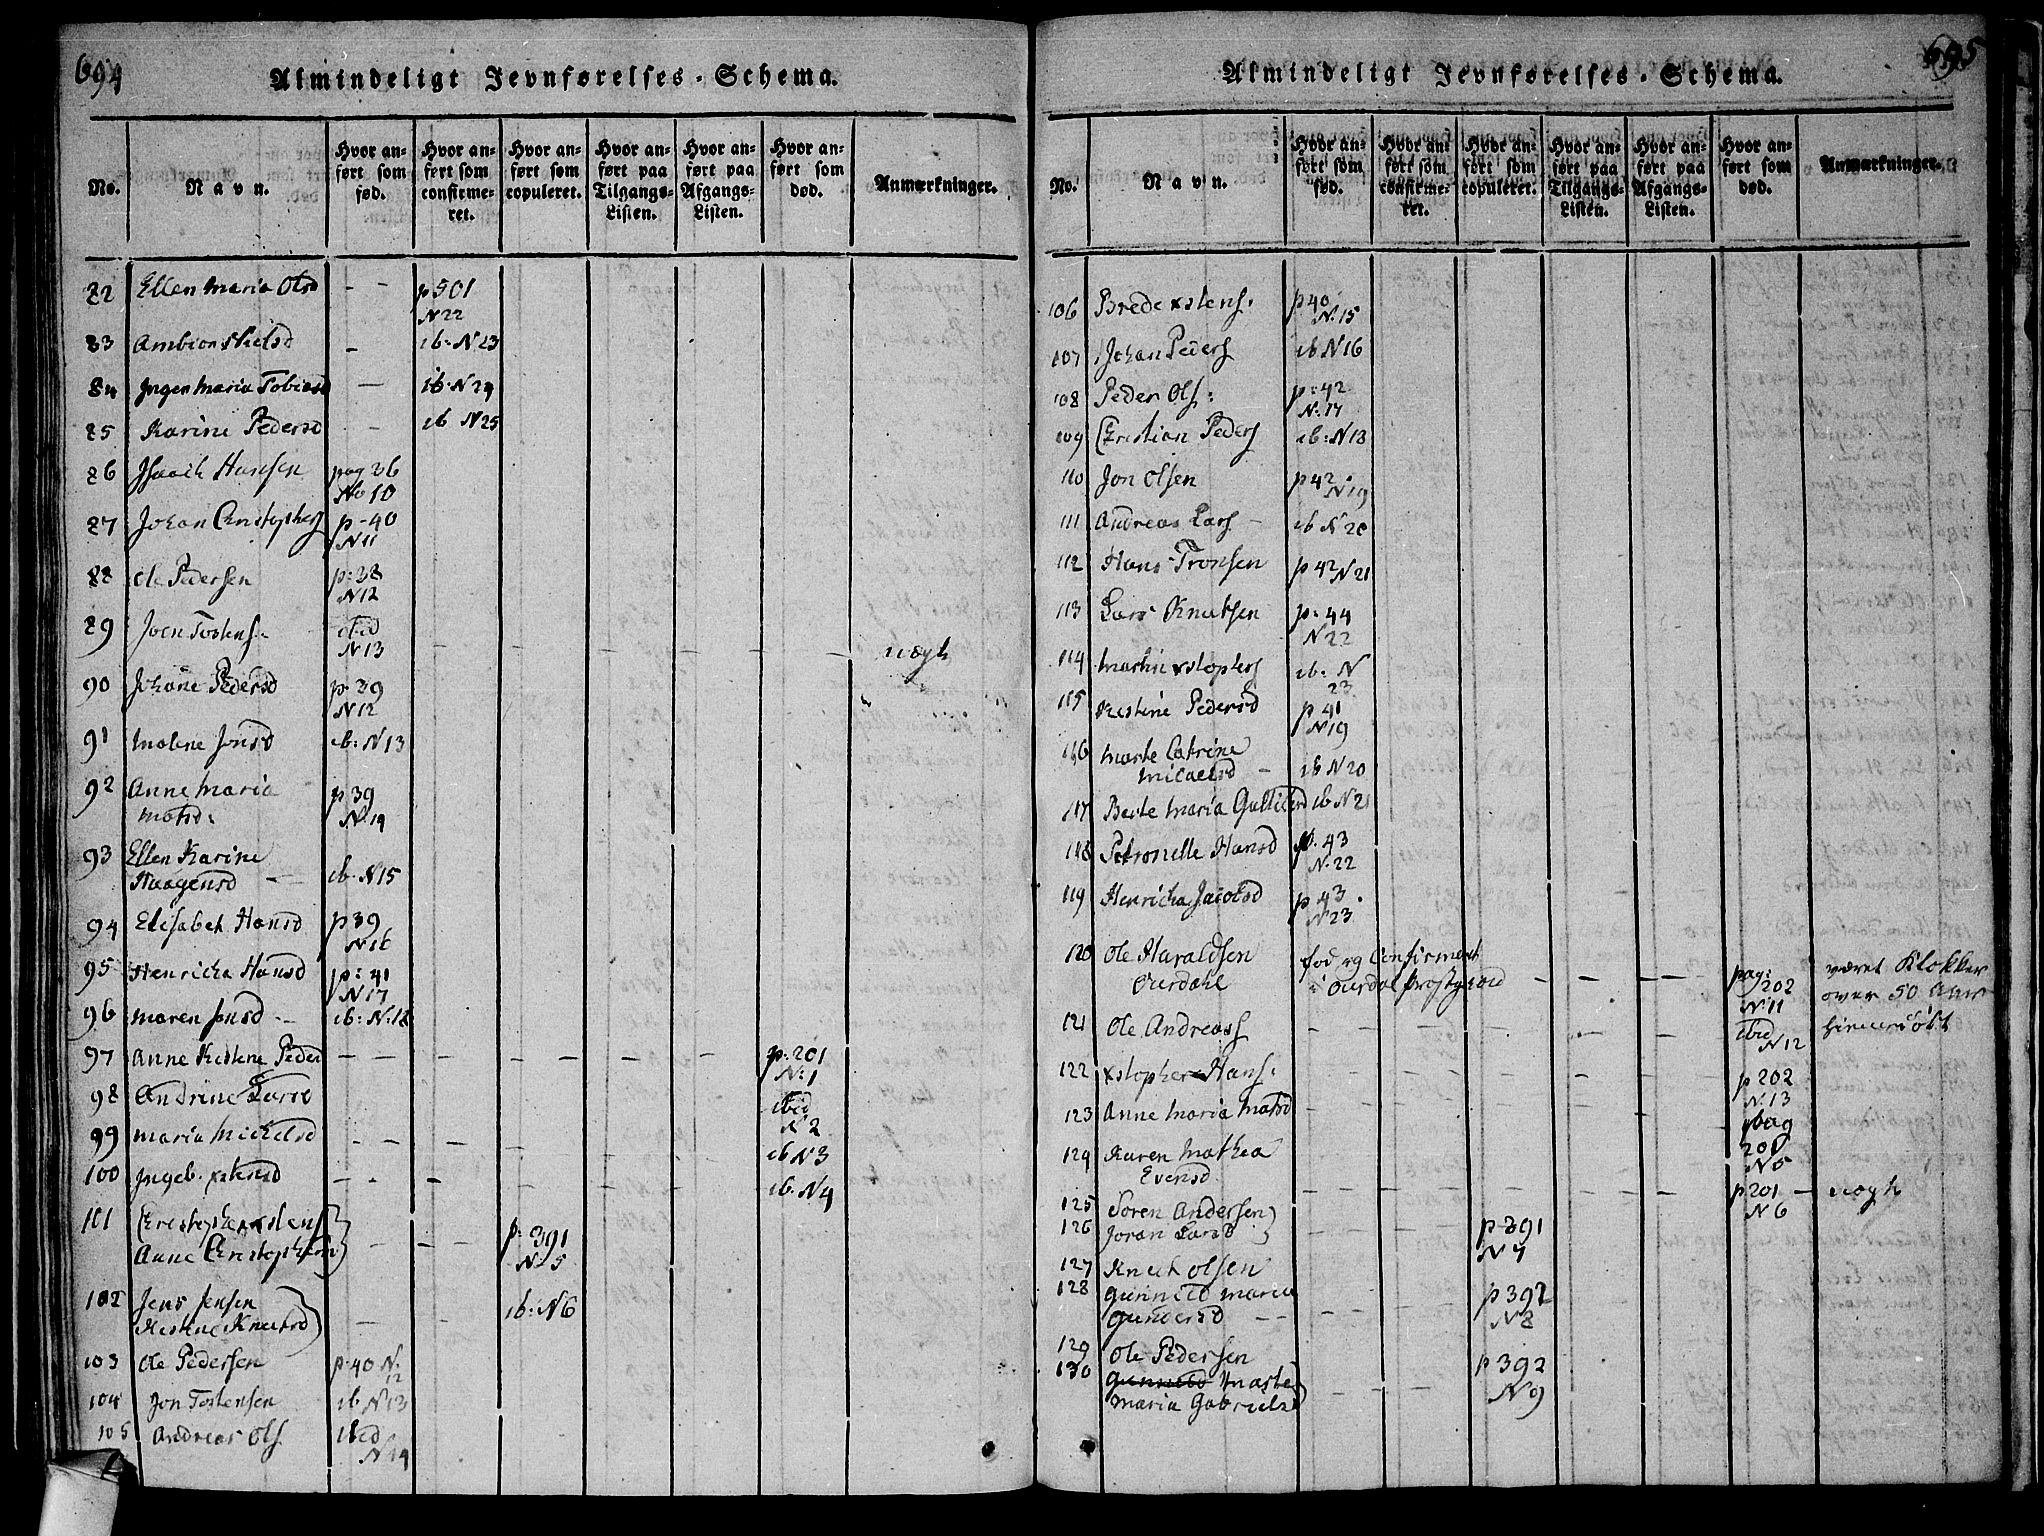 694
Almindeligt Jevnførelses-Schema.
No.
Navn.
Hvor anført som fød.
Hvor anført som confirmeret.
Hvor anført som copuleret.
Hvor anført paa Tilgangs-Listen.
Hvor anført paa Afgangs-Listen.
Hvor anført som død.
Anmærkninger.
82 Ellen Maria Olsd - - p 501
N 22
83 - ib. N 23
84 Ingen Maria Tobiasd - ib. N 24
85 Karine Pedersd - ib N 25
86 Isaach Hansen pag 36
No 10
87 Johan Christophers p - 40
N 11
88 Ole Pedersen p: 38
N 12
89 Joen Tostens. ibid
N 13 - - - - - -
90 Johane Pedersd p. 39
N 12
91 Malene Jonsd ib: N 13
92 Anne Maria
Matsd: p 39
N. 14
93 Ellen Karine
Haagensd - ib. N 15
94 Elisabet Hansd p 39
N 16
95 Henricha Hansd p: 41
N 17
96 Maren Jonsd - ib: N. 18
97 Anne Kistene Peder - - - - - p. 201
N. 1
98 Andrine Larsd ibid
N 2
99 Maria Michelsd - - - - - ib N 3
100 Ingeb. xstensd - - - - - ib. N 4
101 Christopher xstens
Anne Christophersd - - p. 391
N. 5
102 Jens Jensen
Kistene Knutsd - - ib: N 6
103 Ole Pedersen p. 40 N.
12
104 Jon Tostensen ib N 13
105 Andreas Ols ibid
N 14
695
Almindeligt Jevnførelses-Schema.
No.
Navn.
Hvor anført som fød.
Hvor anført som confirmeret.
Hvor anført som copuleret.
Hvor anført paa Tilgangs-Listen.
Hvor anført paa Afgangs-Listen.
Hvor anført som død.
Anmærkninger.
106 Brede xstens. p 40
N. 15
107 Johan Peders ib N 16
108 Peder Ols: p: 42
N. 17
109 Christian Peders ib: N 18
110 Jon Olsen p 42.
N 19
111 Andreas Lars - ib N 20
112 Hans Tronsen p 42 N 21
113 Lars Knutsen p: 44
N 22
114 Martin xstophers ib: N
23
115 Kistine Pedersd p 41
N 19
116 Marte Catrine
Micaelsd - ib N 20
117 Berte Maria ib N 21
118 Petronelle Hansd p. 43
N. 22
119 Henricha Jacobsd p 43.
N 23
120 Ole Haraldsen
Ourdahl
fød og Confirmert
i Ourdal - - - pag:
202
N. 11
været Klokker
over 50 Aar
121 Ole Andreass - - - - - ibid
N 12
122 xstopher Hans. - - - - - p 202
N. 13
123 Anne Maria Matsd - - - - - pag
201
N 5
124 Karen Mathea
Evensd. - - - - - p 201 -
N 6
125 Soren Andersen
126 Joran Larsd - - p 391
N 7
127 Knut Olsen
128 Gunnild Maria
Gundersd - - p 392
N 8
129 Ole Pedersen
130 Gunnild
Maria Gabrielsd - - p 392
N 9